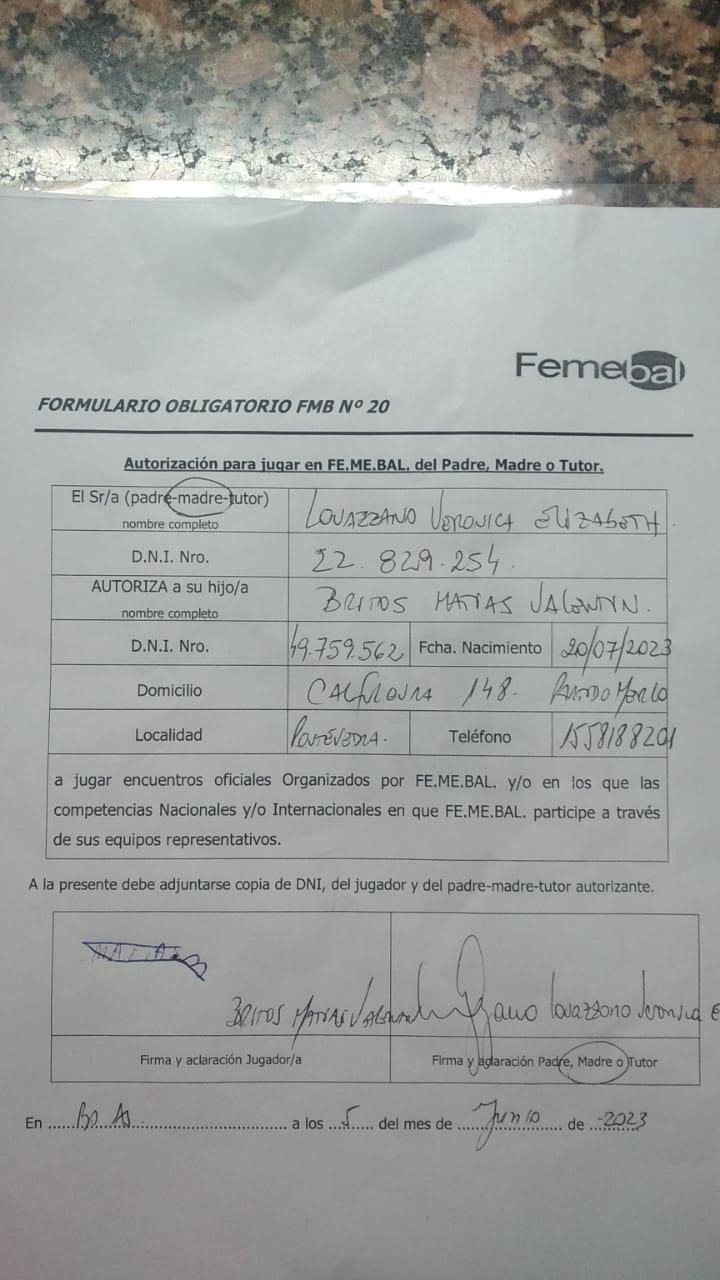 Femebal
FORMULARIO OBLIGATORIO FMB Nº 20
Autorización para jugar en FE.ME.BAL. del Padre, Madre o Tutor.
El Sr/a (padre-madre-tutor)
nombre completo
LOVAZZANO VERONICA ELIZABETH.
D.N.I. Nro. 22.829.254.
AUTORIZA a su hijo/a
nombre completo
BRITOS MATIAS VALENTIN.
D.N.I. Nro. 49.759.562 Fcha. Nacimiento 20/07/2023
Domicilio 148. PARTIDO MERLO
Localidad PONTEVEDRA. Teléfono 1558188201
a jugar encuentros oficiales Organizados por FE.ME.BAL. y/o en los que las
competencias Nacionales y/o Internacionales en que FE.ME.BAL. participe a través
de sus equipos representativos.
A la presente debe adjuntarse copia de DNI, del jugador y del padre-madre-tutor autorizante.
MATIAS B
BRITOS MATIAS VALENTIN Lovazzano Veronica E
Firma y aclaración Jugador/a Firma y aclaración Padre, Madre o Tutor
En ......Bs As............................... a los ...5..... del mes de ......Junio...... de ..2023